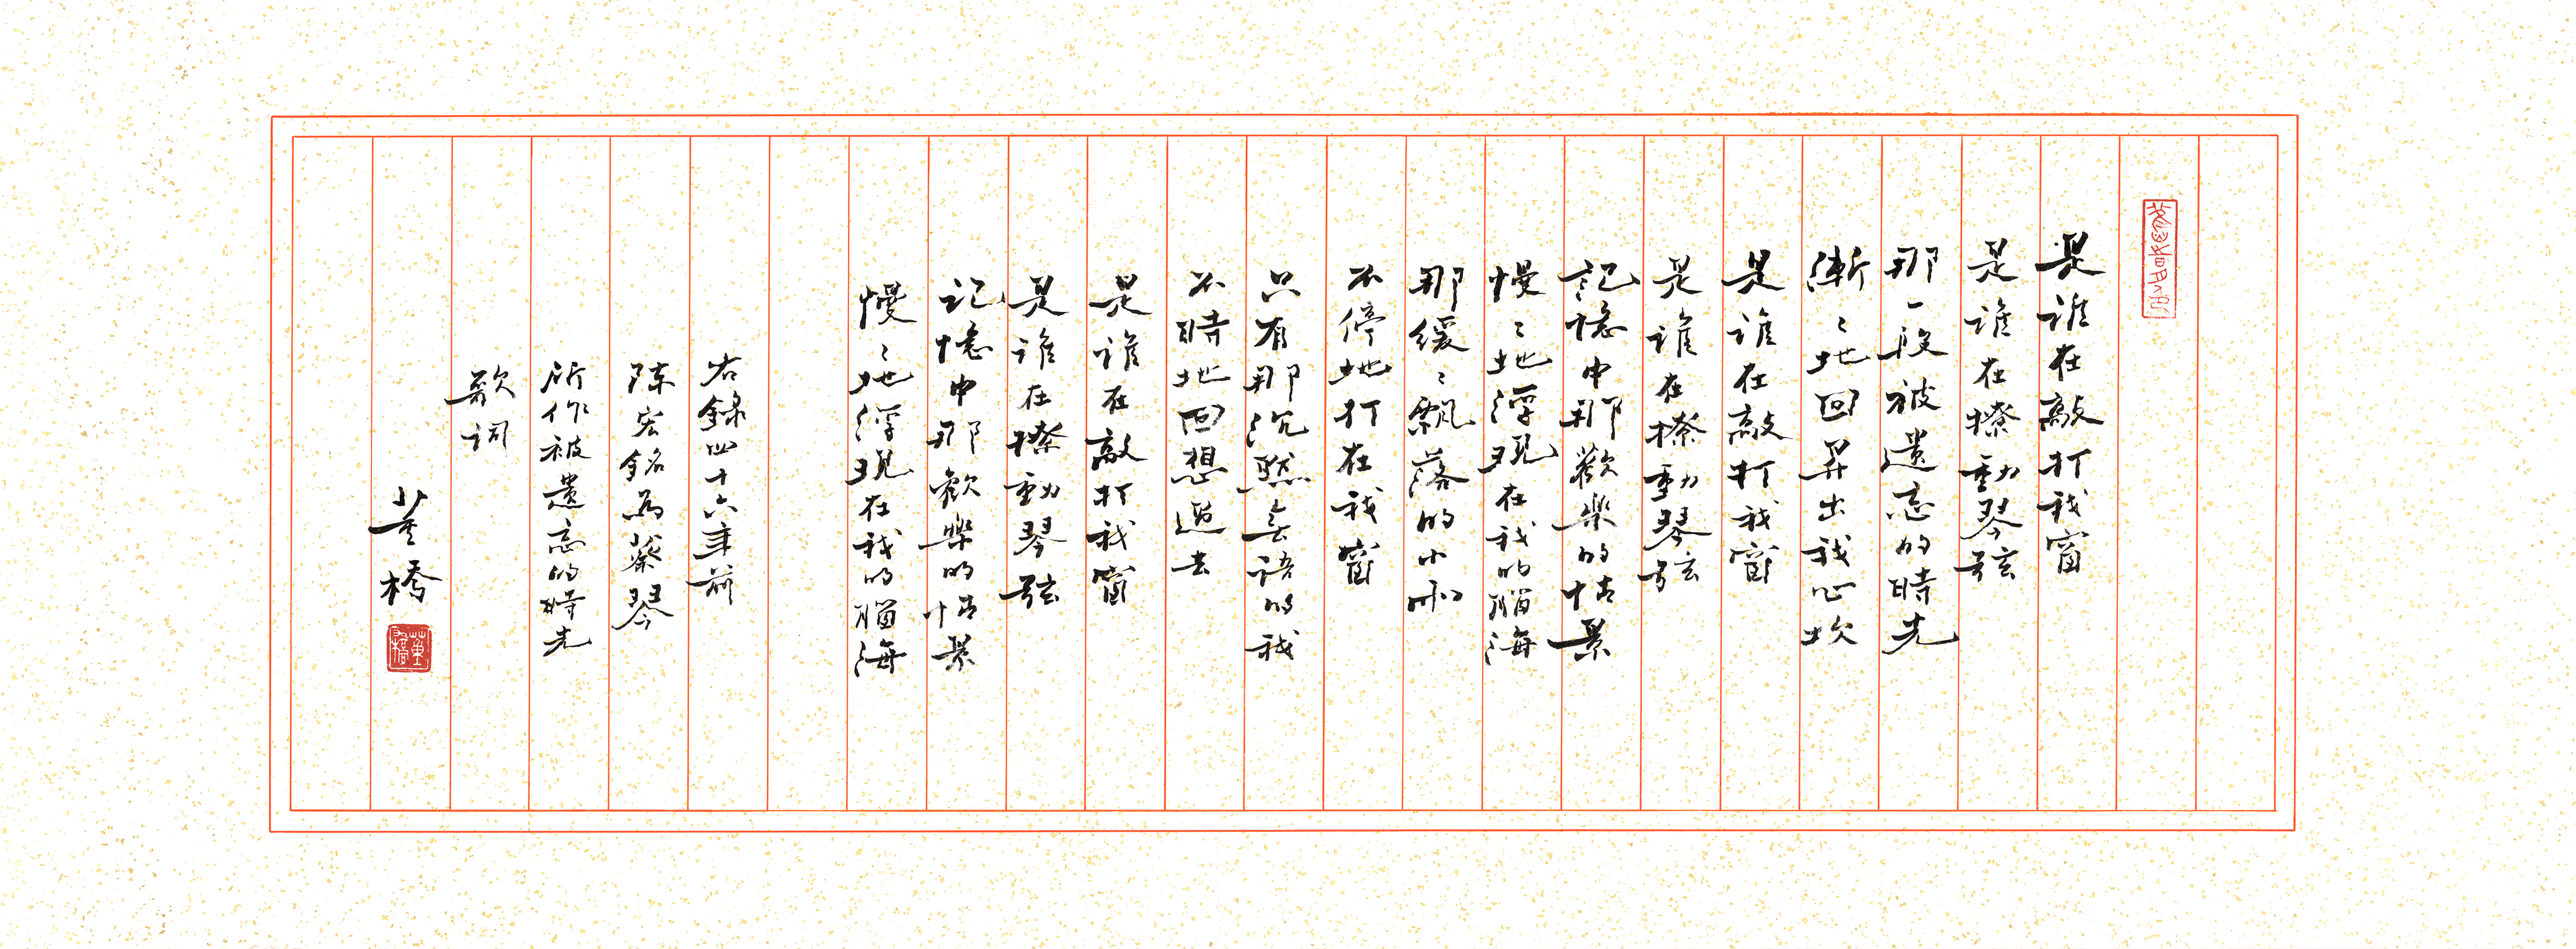 是誰在敲打我窗
是誰在撩動琴弦
那一段被遺忘的時光
漸〻地回昇出我心坎
是誰在敲打我窗
是誰在撩動琴弦
記憶中那歡樂的情景
慢〻地浮現在我的腦海
那緩〻飄落的小雨
不停地打在我窗
只有那沉默無語的我
不時地回想過去
是誰在敲打我窗
是誰在撩動琴弦
記憶中那歡樂的情景
慢〻地浮現在我的腦海
右錄四十六年前
陳宏銘為蔡琴
所作被遺忘的時光
歌詞
董橋
董橋